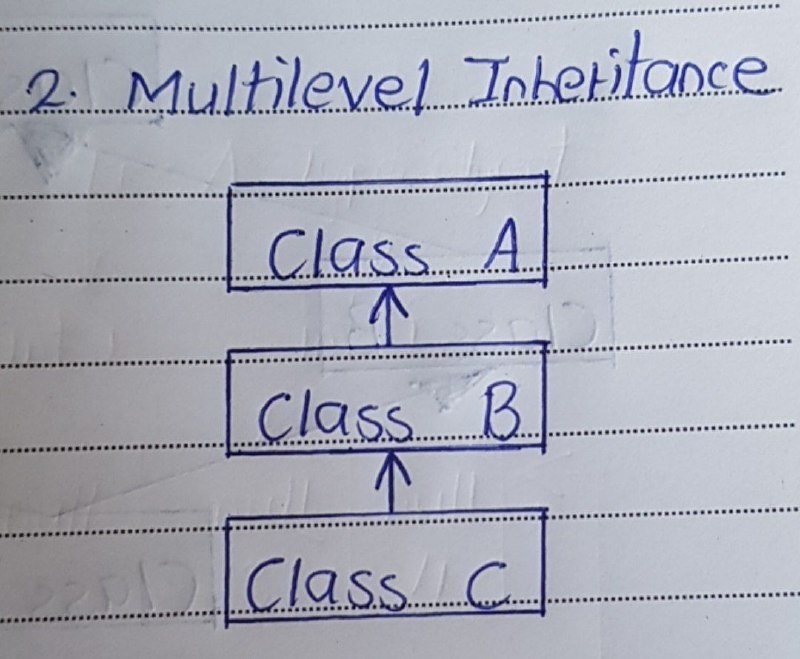 2. Multilevel Inheritance
Class A
Class B
Class C